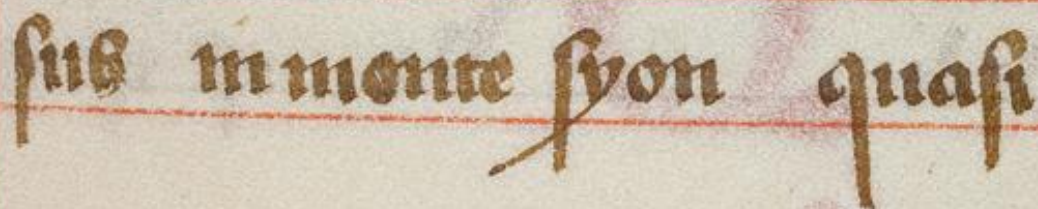 sus in monte syon quasi